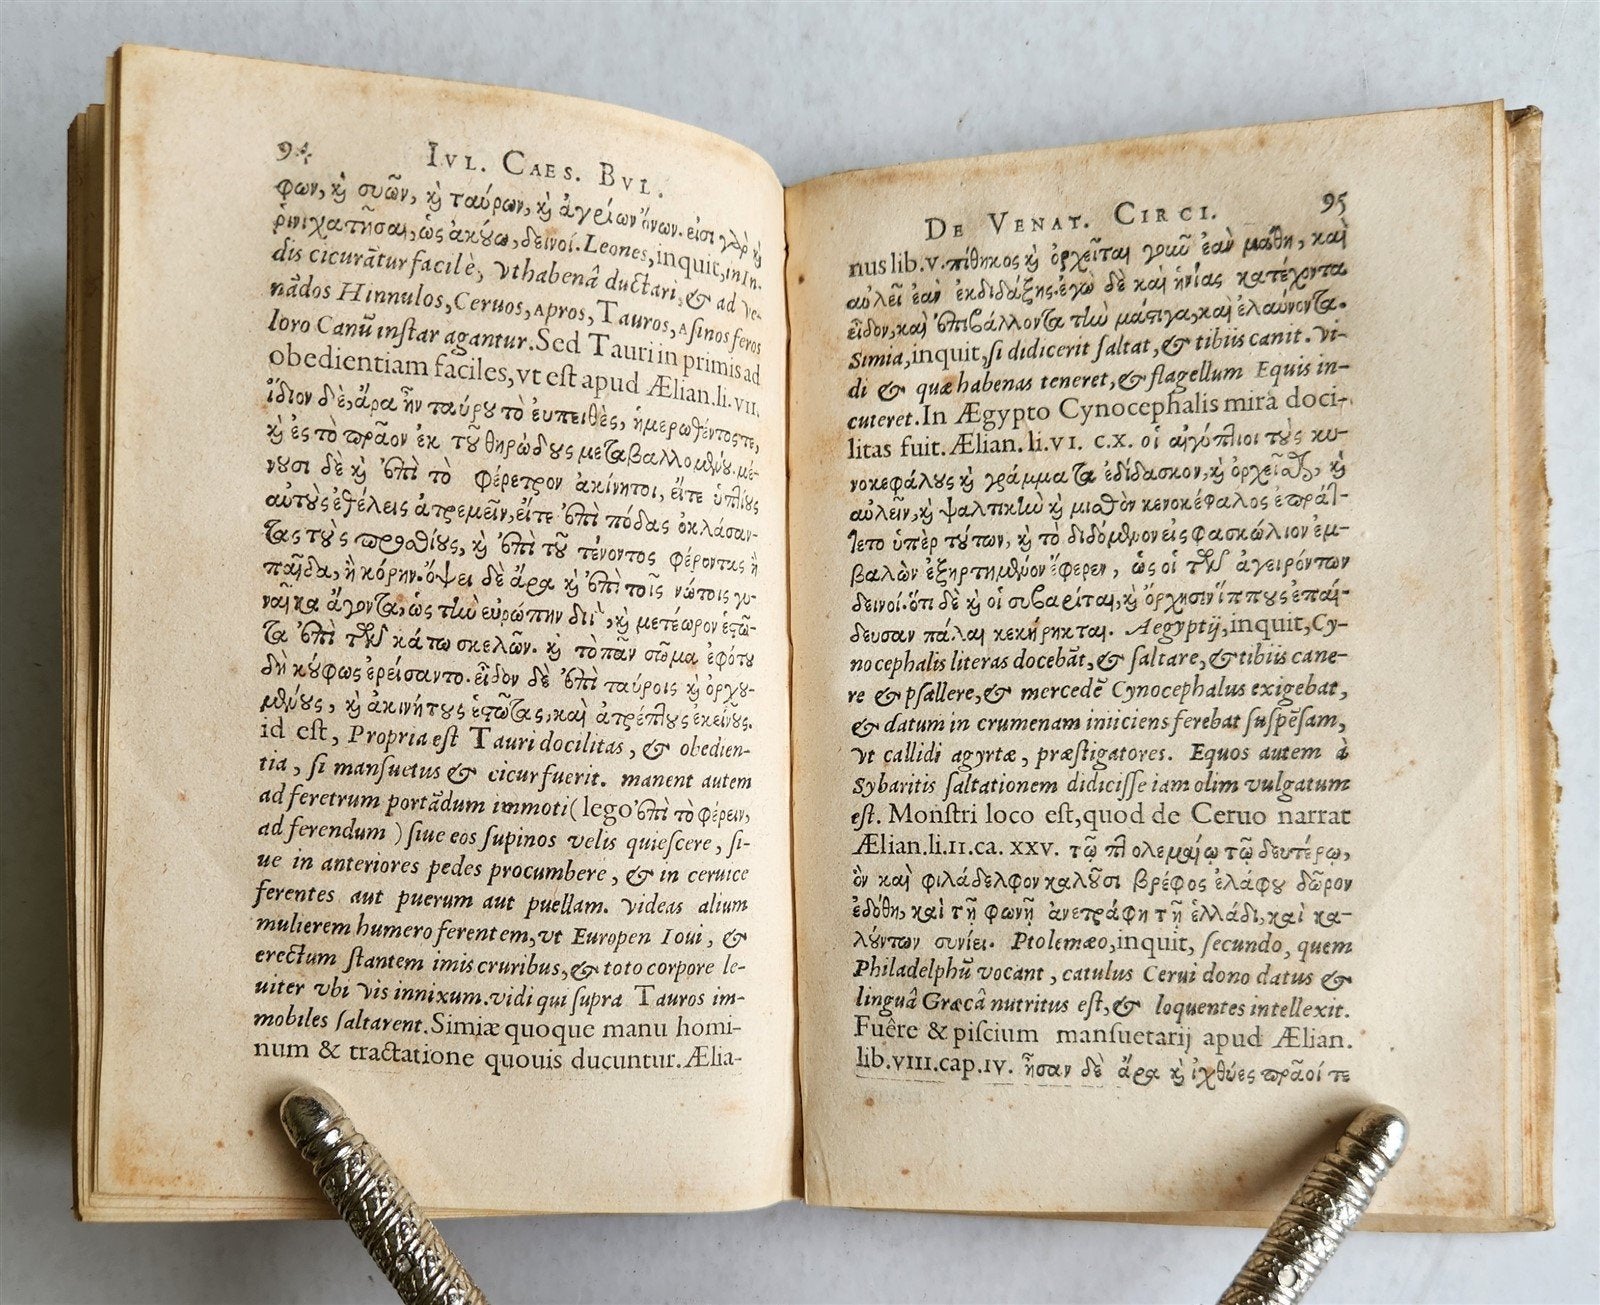 94 IVL. CAES. BVL.
φων, καὶ συῶν, καὶ ταύρων, καὶ ἀγρίων ὄνων. εἰσὶ γὰρ καὶ
ῥινιχατῆσαι, ὡς ἀκούω, δεινοί. Leones, inquit, in In-
dis cicurãtur facilè, vt habenâ ductari, & ad ve-
nãdos Hinnulos, Ceruos, Apros, Tauros, Asinos feros
loro Canũ instar agantur. Sed Tauri in primis ad
obedientiam faciles, vt est apud Ælian. li. VII.
ἴδιον δὲ, ἄρα ἦν ταύρου τὸ ἐυπειθὲς, ἡμερωθέντος τε,
καὶ ἐς τὸ πρᾶον ἐκ τοῦ θηριώδους μεταβαλλομένου. μέ-
νουσι δὲ καὶ ἐπὶ τὸ φέρετρον ἀκίνητοι, εἴτε ὑπτίους
αὐτοὺς ἐθέλεις ἀτρεμεῖν, εἴτε ἐπὶ πόδας ὀκλάσαν-
τας τοὺς προσθίους, καὶ ἐπὶ τοῦ τένοντος φέροντας ἢ
παῖδα, ἢ κόρην. ὄψει δὲ ἄρα καὶ ἐπὶ τοῖς νώτοις γυ-
ναῖκα ἄγοντα, ὡς τὴν εὐρώπην διῒ, καὶ μετέωρον ἑστῶ-
τα ἐπὶ τῶν κάτω σκελῶν. καὶ τὸ πᾶν σῶμα ἐφότου
δὴ κούφως ἐρείσαντο. εἶδον δὲ ἐπὶ ταύροις καὶ ὀρχου-
μένους, καὶ ἀκινήτους ἑστῶτας, καὶ ἀτρέπτους ἐκείνους.
id est, Propria est Tauri docilitas, & obedien-
tia, si mansuetus & cicur fuerit. manent autem
ad feretrum portãdum immoti (lego ἐπὶ τὸ φέρειν,
ad ferendum) siue eos supinos velis quiescere, si-
ue in anteriores pedes procumbere, & in ceruice
ferentes aut puerum aut puellam. Videas alium
mulierem humero ferentem, vt Europen Ioui, &
erectum stantem imis cruribus, & toto corpore le-
uiter vbi vis innixum. vidi qui supra Tauros im-
mobiles saltarent. Simiæ quoque manu homi-
num & tractatione quouis ducuntur. Ælia-
DE VENAT. CIRCI. 95
nus lib. V. πίθηκος καὶ ὀρχεῖται γοῦν ἐὰν μάθῃ, καὶ
αὐλεῖ ἐὰν ἐκδιδάξῃς. ἐγὼ δὲ καὶ ἡνίας κατέχοντα
εἶδον, καὶ ἐπιβάλλοντα τὴν μάστιγα, καὶ ἐλαύνοντα.
Simia, inquit, si didicerit saltat, & tibiis canit. Vi-
di & quæ habenas teneret, & flagellum Equis in-
cuteret. In Ægypto Cynocephalis mira doci-
litas fuit. Ælian. li. VI. C. X. οἱ αἰγύπτιοι τοὺς κυ-
νοκεφάλους καὶ γράμματα ἐδίδασκον, καὶ ὀρχεῖσθαι, καὶ
αὐλεῖν, καὶ ψαλτικὴν καὶ μισθὸν κενοκέφαλος ἐπράτ-
τετο ὑπὲρ τούτων, καὶ τὸ διδόμενον εἰς φασκώλιον ἐμ-
βαλὼν ἐξηρτημένον ἔφερεν, ὡς οἱ τῶν ἀγειρόντων
δεινοί. ὅτι δὲ καὶ οἱ συβαρῖται, καὶ ὄρχησιν ἵππους ἐπαί-
δευσαν πάλαι κεκήρηκται. Aegyptij, inquit, Cy-
nocephalis literas docebãt, & saltare, & tibiis cane-
re & psallere, & mercedẽ Cynocephalus exigebat,
& datum in crumenam iniiciens ferebat suspẽsam,
vt callidi agyrtæ, præstigatores. Equos autem à
Sybaritis saltationem didicisse iam olim vulgatum
est. Monstri loco est, quod de Ceruo narrat
Ælian. li. II. ca. XXV. τῷ πτολεμαίῳ τῷ δευτέρῳ,
ὃν καὶ φιλάδελφον καλοῦσι βρέφος ἐλάφου δῶρον
ἐδόθη, καὶ τῇ φωνῇ ἀνετράφη τῇ ἑλλάδι, καὶ κα-
λούντων συνίει. Ptolemæo, inquit, secundo, quem
Philadelphũ vocant, catulus Cerui dono datus &
linguâ Græcâ nutritus est, & loquentes intellexit.
Fuêre & piscium mansuetarij apud Ælian.
lib. VIII. cap. IV. ἦσαν δὲ ἄρα καὶ ἰχθύες πρᾶοί τε